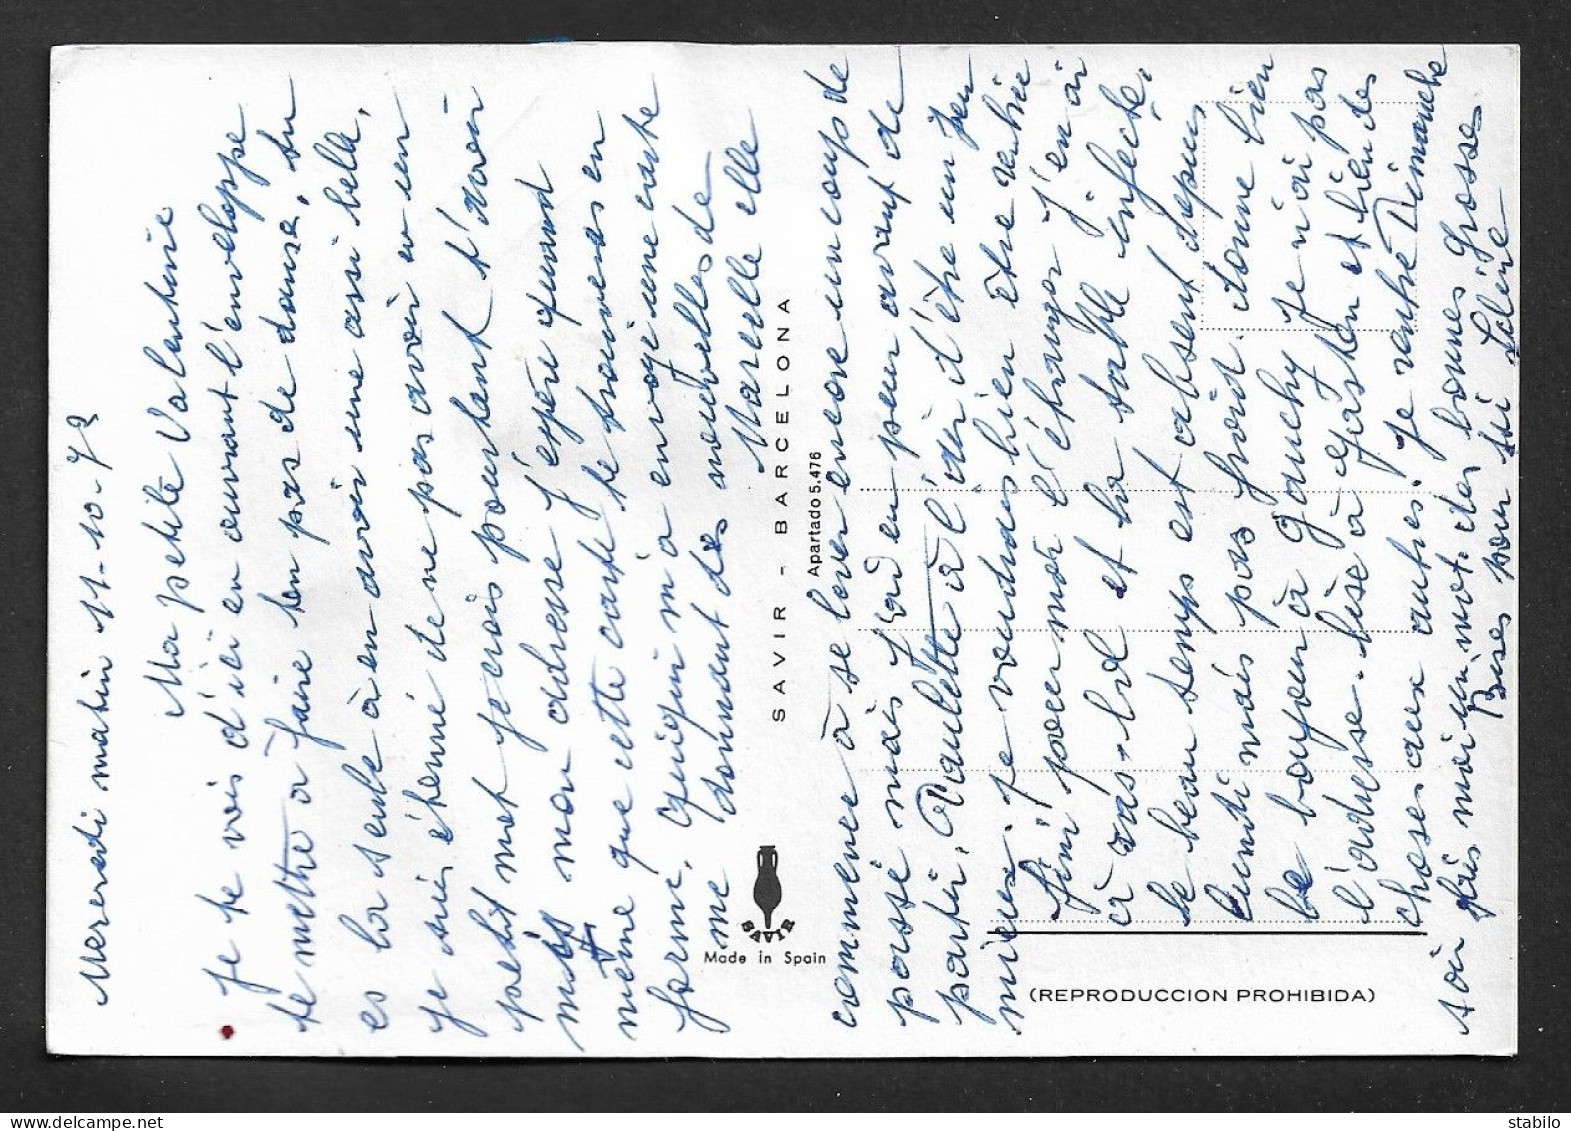 Mercredi matin 11-10-73
Ma petite Valentine
Je te vois d'ici en ouvrant l'enveloppe
te mettre à faire ton pas de danse, tu
es la seule à en avoir une assi belle,
je suis étonné de ne pas avoir eu un
petit mot j'erois pourtant t'avoir
mis mon adresse j'espère quand
même que cette carte te trouveras en
forme. Quiqui m'a envoyé une carte
me donnant des nouvelles de
Marcelle elle
SAVIR - BARCELONA
Apartado 5.476
SAVIR
Made in Spain
commence à se lever encore un coups de
passé mais j'ai eu peur avant de
partir. Paulette à l'air d'être un peu
mieux. je voudrais bien être rentrée
fini pour moi l'étranger j'en ai
à ras-bol et la table infecte.
le beau temps est absent depuis
Lundi mais pas froid. donne bien
le bonjour à Gauchy je n'ai pas
l'adresse. bise à Gaston et bien des
choses aux autres. je rentre Dimanche
soir fais moi un mot. des bonnes grosses
Bises pour toi Céline
(REPRODUCCION PROHIBIDA)